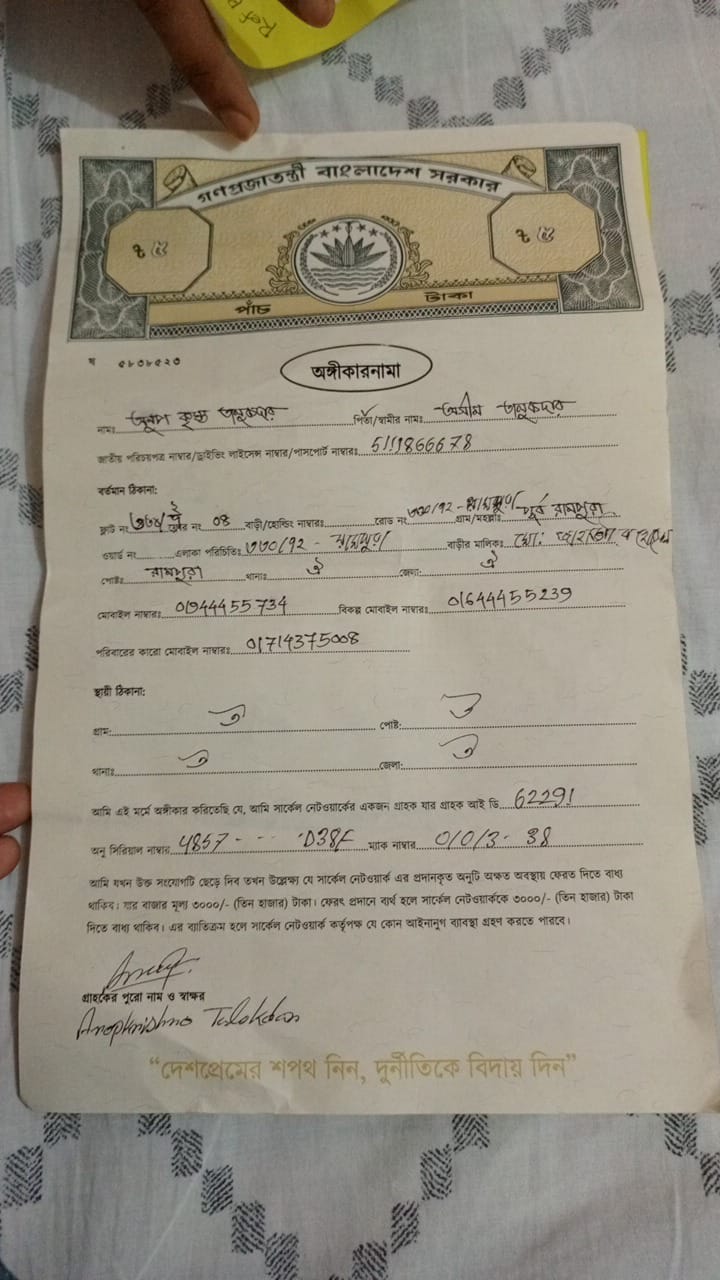 Ref
গণপ্রজাতন্ত্রী বাংলাদেশ সরকার
৳ ৫ ৳ ৫
পাঁচ টাকা
খ ৫৮৩৮৫২৩
অঙ্গীকারনামা
নামঃ অনুপ কৃষ্ণ তালুকদার পিতা/স্বামীর নামঃ অসীম তালুকদার
জাতীয় পরিচয়পত্র নাম্বার/ড্রাইভিং লাইসেন্স নাম্বার/পাসপোর্ট নাম্বারঃ 5111866678
বর্তমান ঠিকানা:
ফ্লাট নং ফ্লোর নং 04 বাড়ী/হোল্ডিং নাম্বারঃ রোড নং গ্রাম/মহল্লাঃ পূর্ব রামপুরা
ওয়ার্ড নং এলাকা পরিচিতিঃ বাড়ীর মালিকঃ মো:
পোষ্টঃ রামপুরা থানাঃ ঐ জেলা: ঐ
মোবাইল নাম্বারঃ 01944455734 বিকল্প মোবাইল নাম্বারঃ 01644455239
পরিবারের কারো মোবাইল নাম্বারঃ 01714375008
স্থায়ী ঠিকানা:
গ্রাম: পোষ্ট:
থানাঃ জেলা:
আমি এই মর্মে অঙ্গীকার করিতেছি যে, আমি সার্কেল নেটওয়ার্কের একজন গ্রাহক যার গ্রাহক আই ডি 62291
অনু সিরিয়াল নাম্বার 4857 - - - D38F ম্যাক নাম্বার 0/0/3- 38
আমি যখন উক্ত সংযোগটি ছেড়ে দিব তখন উল্লেক্ষ্য যে সার্কেল নেটওয়ার্ক এর প্রদানকৃত অনুটি অক্ষত অবস্থায় ফেরত দিতে বাধ্য
থাকিব। যার বাজার মূল্য ৩০০০/- (তিন হাজার) টাকা। ফেরৎ প্রদানে ব্যর্থ হলে সার্কেল নেটওয়ার্ককে ৩০০০/- (তিন হাজার) টাকা
দিতে বাধ্য থাকিব। এর ব্যাতিক্রম হলে সার্কেল নেটওয়ার্ক কর্তৃপক্ষ যে কোন আইনানুগ ব্যাবস্থা গ্রহণ করতে পারবে।
গ্রাহকের পুরো নাম ও স্বাক্ষর
Anopkrishno Talokdar
“দেশপ্রেমের শপথ নিন, দুর্নীতিকে বিদায় দিন”